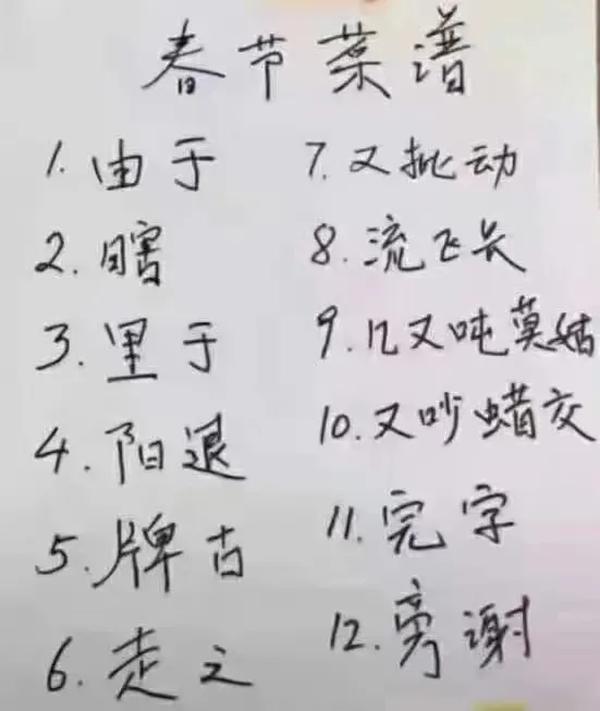 春节菜谱
1. 由于
2. 瞎
3. 里于
4. 阳退
5. 牌古
6. 走之
7. 又批动
8. 流飞长
9. 几又吨莫姑
10. 又吵蜡交
11. 完字
12. 旁谢